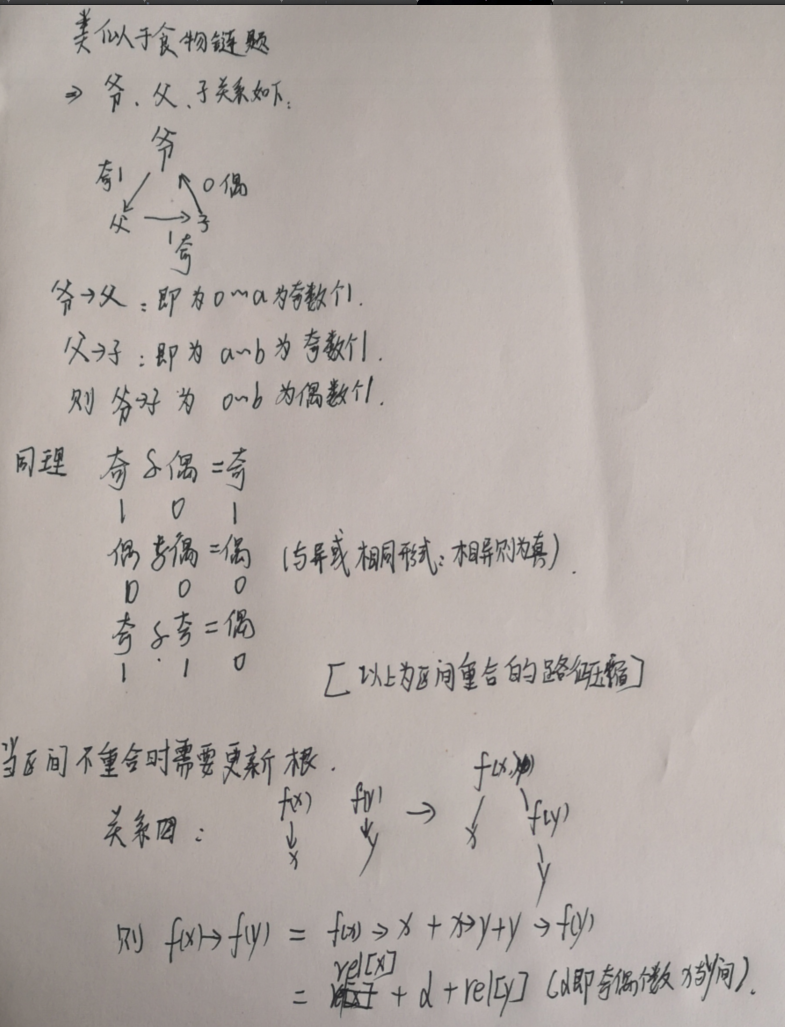 类似于食物链题
⇒ 爷、父、子关系如下:
爷
奇1 0偶
父 子
1
奇
爷→父:即为0~a为奇数个1.
父→子:即为a~b为奇数个1.
则爷→子为0~b为偶数个1.
同理 奇与偶=奇
1 0 1
偶与偶=偶 (与异或相同形式:相异则为真).
0 0 0
奇与奇=偶
1 1 0
[以上为区间重合的路径压缩]
当区间不重合时需要更新根.
关系图: f(x) f(y) → f(x)
x y x f(y)
y
则 f(x)→f(y) = f(x)→x + x→y + y→f(y)
rel[x]
= + d + rel[y] (d即奇偶个数x与y间).